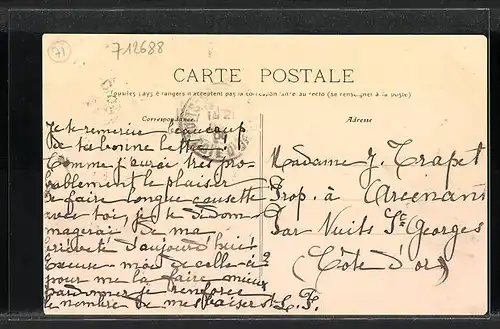 71
712688
CARTE POSTALE
Tous les pays étrangers n'acceptent pas la correspondance au recto (se renseigner à la poste)
Correspondance
Adresse
Je te remercie beaucoup
de ta bonne lettre.
Comme j'aurai très pro-
bablement le plaisir
de faire longue causette
avec toi, je te dédom-
magerai de ma
brièveté d'aujourd'hui
Excuse-moi de celle-ci
pour me la faire mieux
pardonner je renforce
le nombre de mes baisers L. F.
Madame J. Trapet
Prop. à Arcenant
Par Nuits St Georges
(Côte d'or)